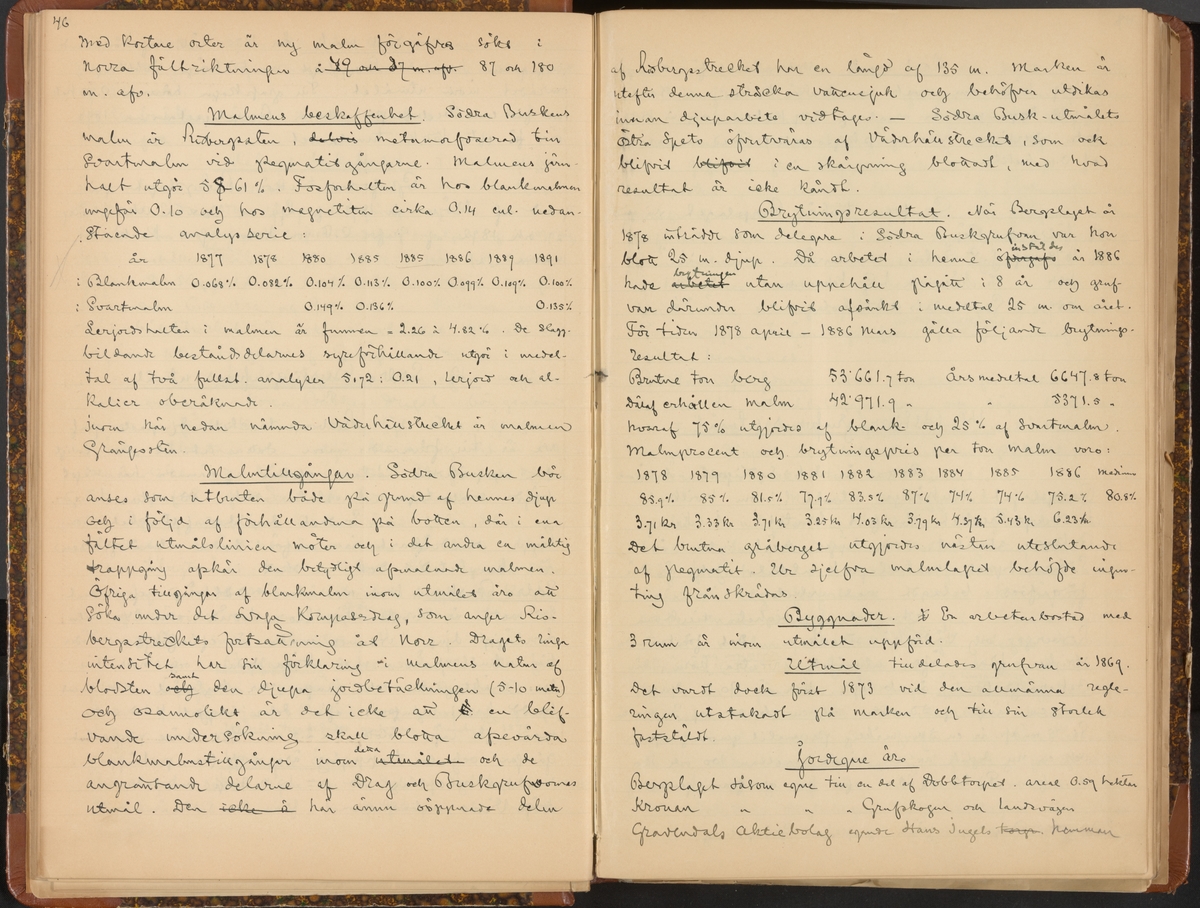 46
med kortare orter är ny malm förgäfves sökt i
norra fältriktningen å 79 och 87 m. afv. 87 och 180
m. afv.
Malmens beskaffenhet. Södra Buskens
malm är Risbergsten, delvis metamorfoserad till
Svartmalm vid pegmatitgångarne. Malmens järn-
halt utgör 58-61 %. Fosforhalten är hos blankmalmen
ungefär 0.10 och hos magnetiten cirka 0.14 enl. nedan-
stående analysserie:
år 1877 1878 1880 1885 1885 1886 1889 1891
: Blankmalm 0.068% 0.082% 0.104% 0.113% 0.100% 0.099% 0.109% 0.100%
: Svartmalm 0.149% 0.136% 0.135%
Lerjordshalten i malmen är funnen = 2.26 à 4.82%. De slagg-
bildande beståndsdelarnes syreförhållande utgör i medel-
tal af två fullst. analyser 5,72 : 0.21, lerjord och al-
kalier oberäknade.
Inom här nedan nämnda Väderhäustrecket är malmen
Grängessten.
Malmtillgångar. Södra Busken bör
anses som utbruten både på grund af hennes djup
och i följd af förhållandena på botten, där i ena
fältet utmålslinien möter och i det andra en mäktig
trappgång afskär den betydligt afsmalnade malmen.
Öfriga tillgångar af blankmalm inom utmålet äro att
söka under det svaga Kompassdrag, som anger Ris-
bergsstreckets fortsättning åt Norr. Dragets ringa
intensitet har sin förklaring i malmens natur af
blodsten och samt den djupa jordbetäckningen (5-10 meter)
och osannolikt är det icke att en blif-
vande undersökning skall blotta afsevärda
blankmalmstillgångar inom detta utmålet och de
angränsande delarne af Drag och Buskgrufvornes
utmål. Den icke å här ännu oöppnade delen
af Risbergsstrecket har en längd af 135 m. Marken är
utefter denna sträcka vattensjuk och behöfver utdikas
innan djuparbete vidtages. — Södra Busk-utmålets
östra spets öfvertväras af Väderhäustrecket, som ock
blifvit blifvit i en skärpning blottadt, med hvad
resultat är icke kändt.
Brytningsresultat. När Bergslaget år
1878 inträdde som delegare i Södra Buskgrufvan var hon
blott 25 m. djup. Då arbetet i henne öfvergafs inställdes år 1886
hade arbetet brytningen utan uppehåll pågått i 8 år och gruf-
van därunder blifvit afsänkt i medeltal 25 m. om året.
För tiden 1878 april — 1886 Mars gälla följande brytnings-
resultat:
Brutne ton berg 53'661.7 ton Årsmedeltal 6647.8 ton
Däraf erhållen malm 42'971.9 " " 5371.5 "
hvaraf 75% utgjordes af blank- och 25% af svartmalm.
Malmprocent och brytningspris per ton malm voro:
1878 1879 1880 1881 1882 1883 1884 1885 1886 medium
85.9% 85% 81.5% 77.9% 83.5% 87% 74% 74% 75.2% 80.8%
3.71 kr 3.33 kr 3.71 kr 3.25 kr 4.03 kr 3.79 kr 4.37 kr 5.43 kr 6.23 kr
Det brutna gråberget utgjordes nästan uteslutande
af pegmatit. Ur sjelfva malmlagret behöfde ingen-
ting frånskrädas.
Byggnader. En arbetarebostad med
3 rum är inom utmålet uppförd.
Utmål tilldelades grufvan år 1869.
Det vardt dock först 1873 vid den allmänna regle-
ringen utstakadt på marken och till sin storlek
fastställdt.
Jordegne äro
Bergslaget såsom egne till en del af Dobbtorpet. areal 0.59 hektar
Kronan " " " Grufskogen och landsvägen
Gravendals Aktiebolag egande Hans Ingels Hemman